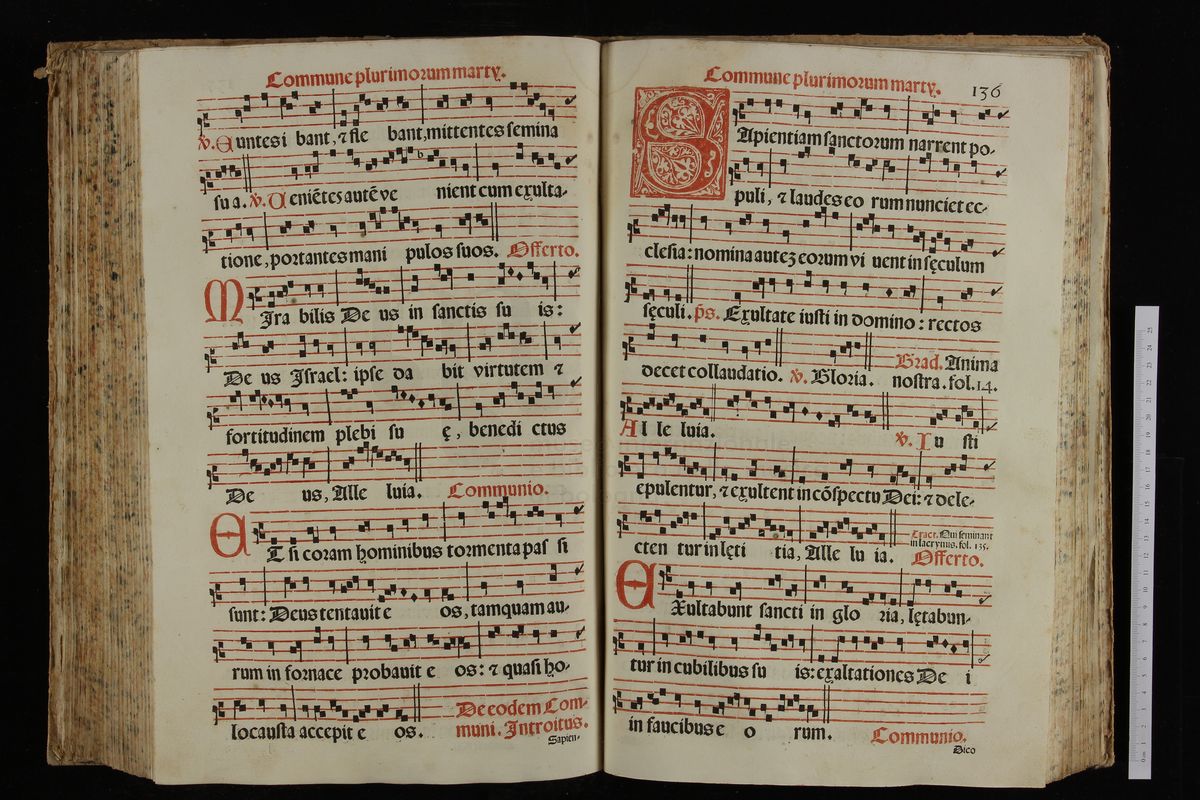 Commune plurimorum marty.
℣. Euntes i bant, ⁊ fle bant, mittentes semina
sua. ℣. Ueniētes autē ve nient cum exulta-
tione, portantes mani pulos suos. Offerto.
MIra bilis De us in sanctis su is:
De us Israel: ipse da bit virtutem ⁊
fortitudinem plebi su ę, benedi ctus
De us, Alle luia. Communio.
ET si coram hominibus tormenta pas si
sunt: Deus tentauit e os, tamquam au-
rum in fornace probauit e os: ⁊ quasi ho-
locausta accepit e os. De eodem Com-
muni. Introitus.
Sapien-
Commune plurimorum marty. 136
SApientiam sanctorum narrent po-
puli, ⁊ laudes eo rum nunciet ec-
clesia: nomina auteʒ eorum vi uent in sęculum
sęculi. p̄s. Exultate iusti in domino: rectos
decet collaudatio. ℣. Gloria. Grad. Anima
nostra. fol. 14.
Al le luia. ℣. Iu sti
epulentur, ⁊ exultent in cōspectu Dei: ⁊ dele-
cten tur in lęti tia, Alle lu ia. Tract. Qui seminant
in lacrymis. fol. 135.
Offerto.
EXultabunt sancti in glo ria, lętabun-
tur in cubilibus su is: exaltationes De i
in faucibus e o rum. Communio.
Dico